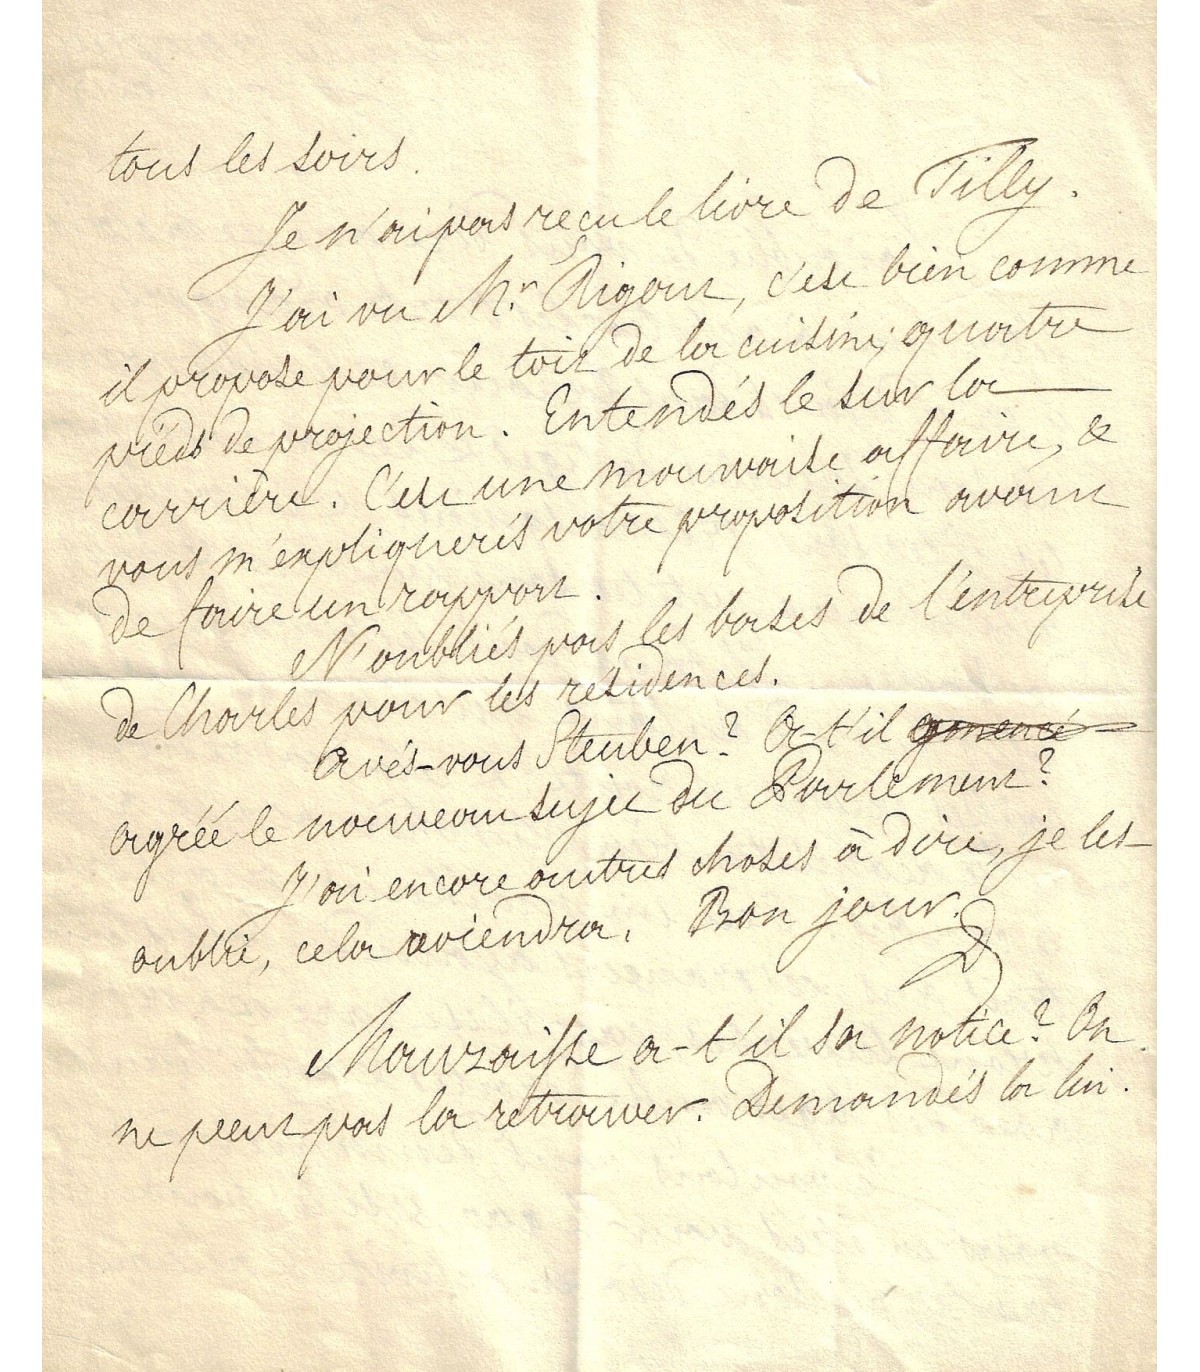 tous les soirs.
Je n'ai pas reçu le livre de Tilly.
J'ai vu Mr. Rigaut, c'est bien comme
il propose pour le toit de la cuisine; quatre
piéds de projection. Entendés le sur la
carrière. C'est une mauvaise affaire, &
vous m'expliquerés votre proposition avant
de faire un rapport.
N'oubliés pas les bases de l'entreprise
de Charles pour les résidences.
Avés-vous Steuben? A-t'il
agréé le nouveau sujet du Parlement?
J'ai encore autres choses à dire, je les
oublie, cela reviendra. Bon jour.
D
Mauzaisse a-t'il sa notice? On
ne peut pas la retrouver. Demandés la lui.